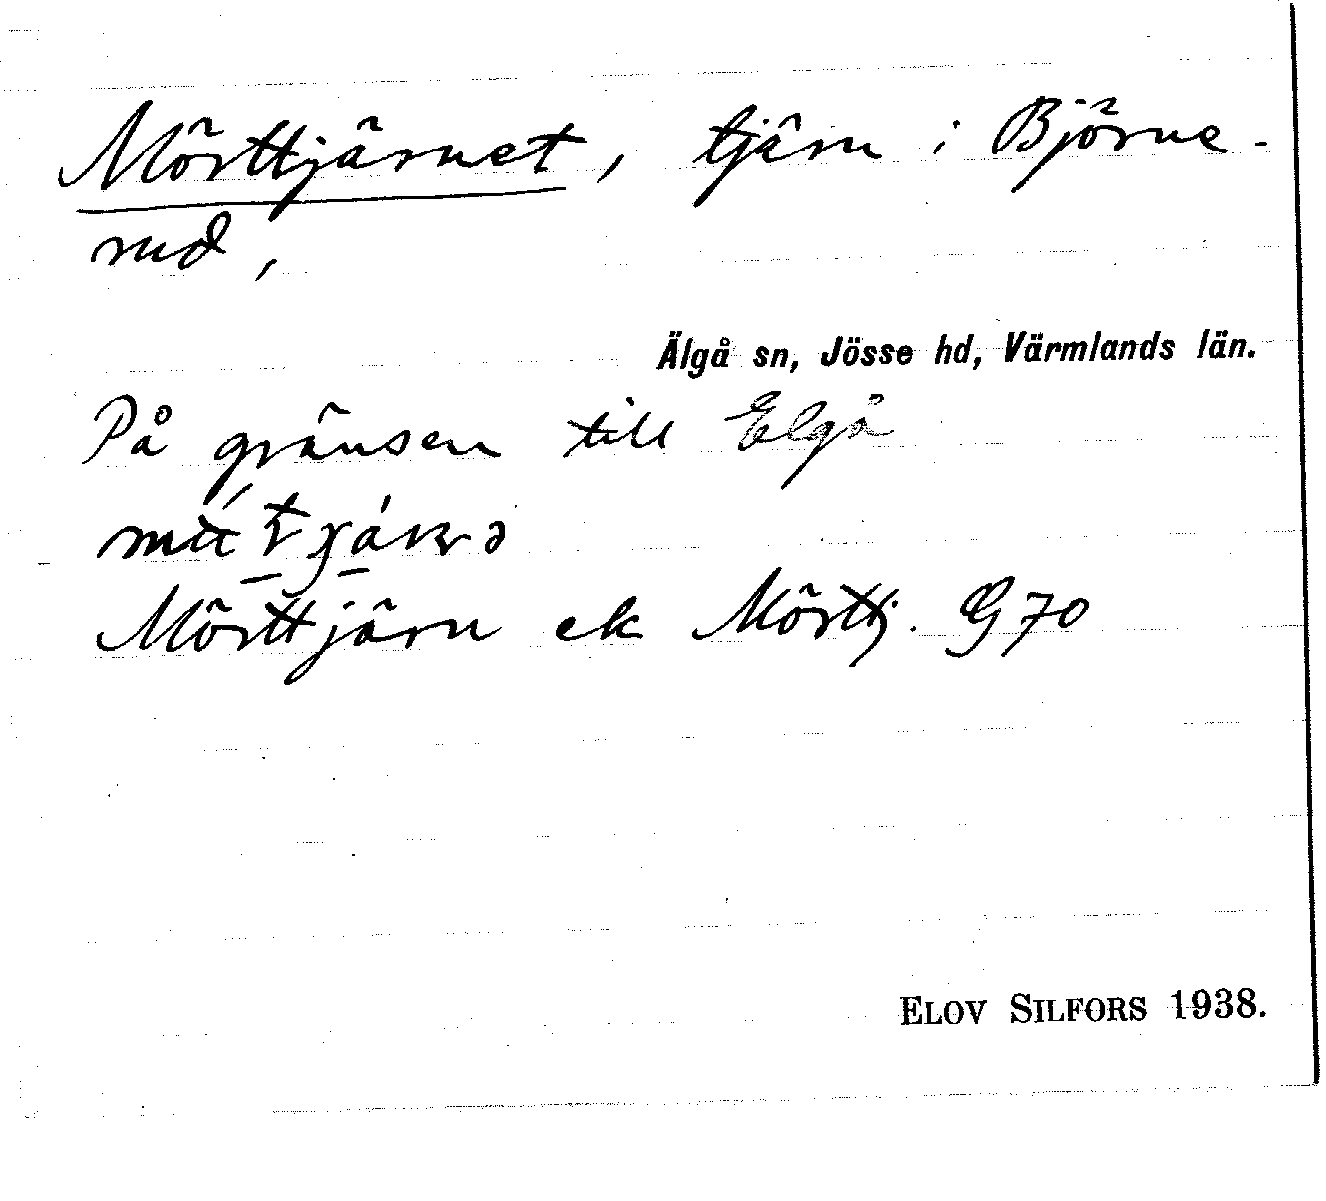 Mörttjärnet, tjärn i Björne-
rud,
Älgå sn, Jösse hd, Värmlands län.
På gränsen till Elgå
Mörttjärn ek Mörttj. G 70
ELOV SILFORS 1938.